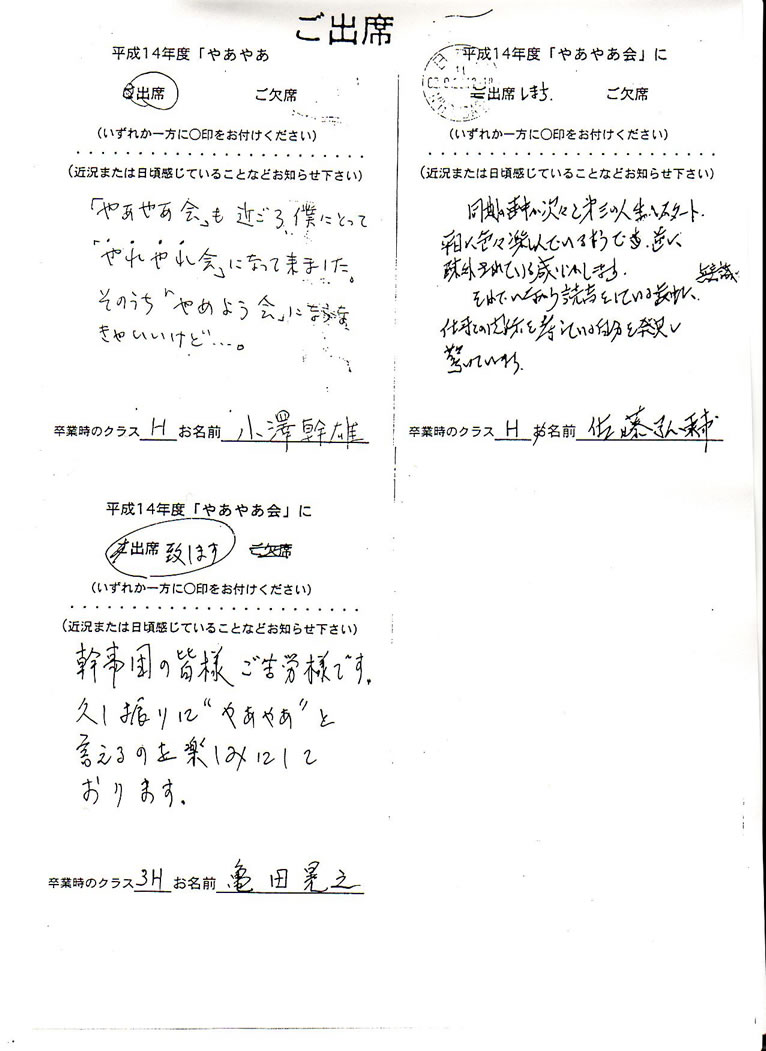 ご出席
平成14年度「やあやあ
出席 ご欠席
(いずれか一方に〇印をお付けください)
(近況または日頃感じていることなどお知らせ下さい)
「やあやあ会」も近ごろ、僕にとって
「やれやれ会」になって来ました。
そのうち「やめよう会」に
きゃいいけど…。
卒業時のクラス H お名前 小澤幹雄
平成14年度「やあやあ会」に
出席します. ご欠席
(いずれか一方に〇印をお付けください)
(近況または日頃感じていることなどお知らせ下さい)
同期の連中が次々と第三の人生へスタート.
疎外されている感じがします.
無意識
仕事との関係を考えている自分を発見し
驚いています.
卒業時のクラス H お名前 佐藤
平成14年度「やあやあ会」に
出席致します ご欠席
(いずれか一方に〇印をお付けください)
(近況または日頃感じていることなどお知らせ下さい)
幹事団の皆様ご苦労様です.
久し振りに“やあやあ”と
言えるのを楽しみにして
おります.
卒業時のクラス 3H お名前 亀田晃之